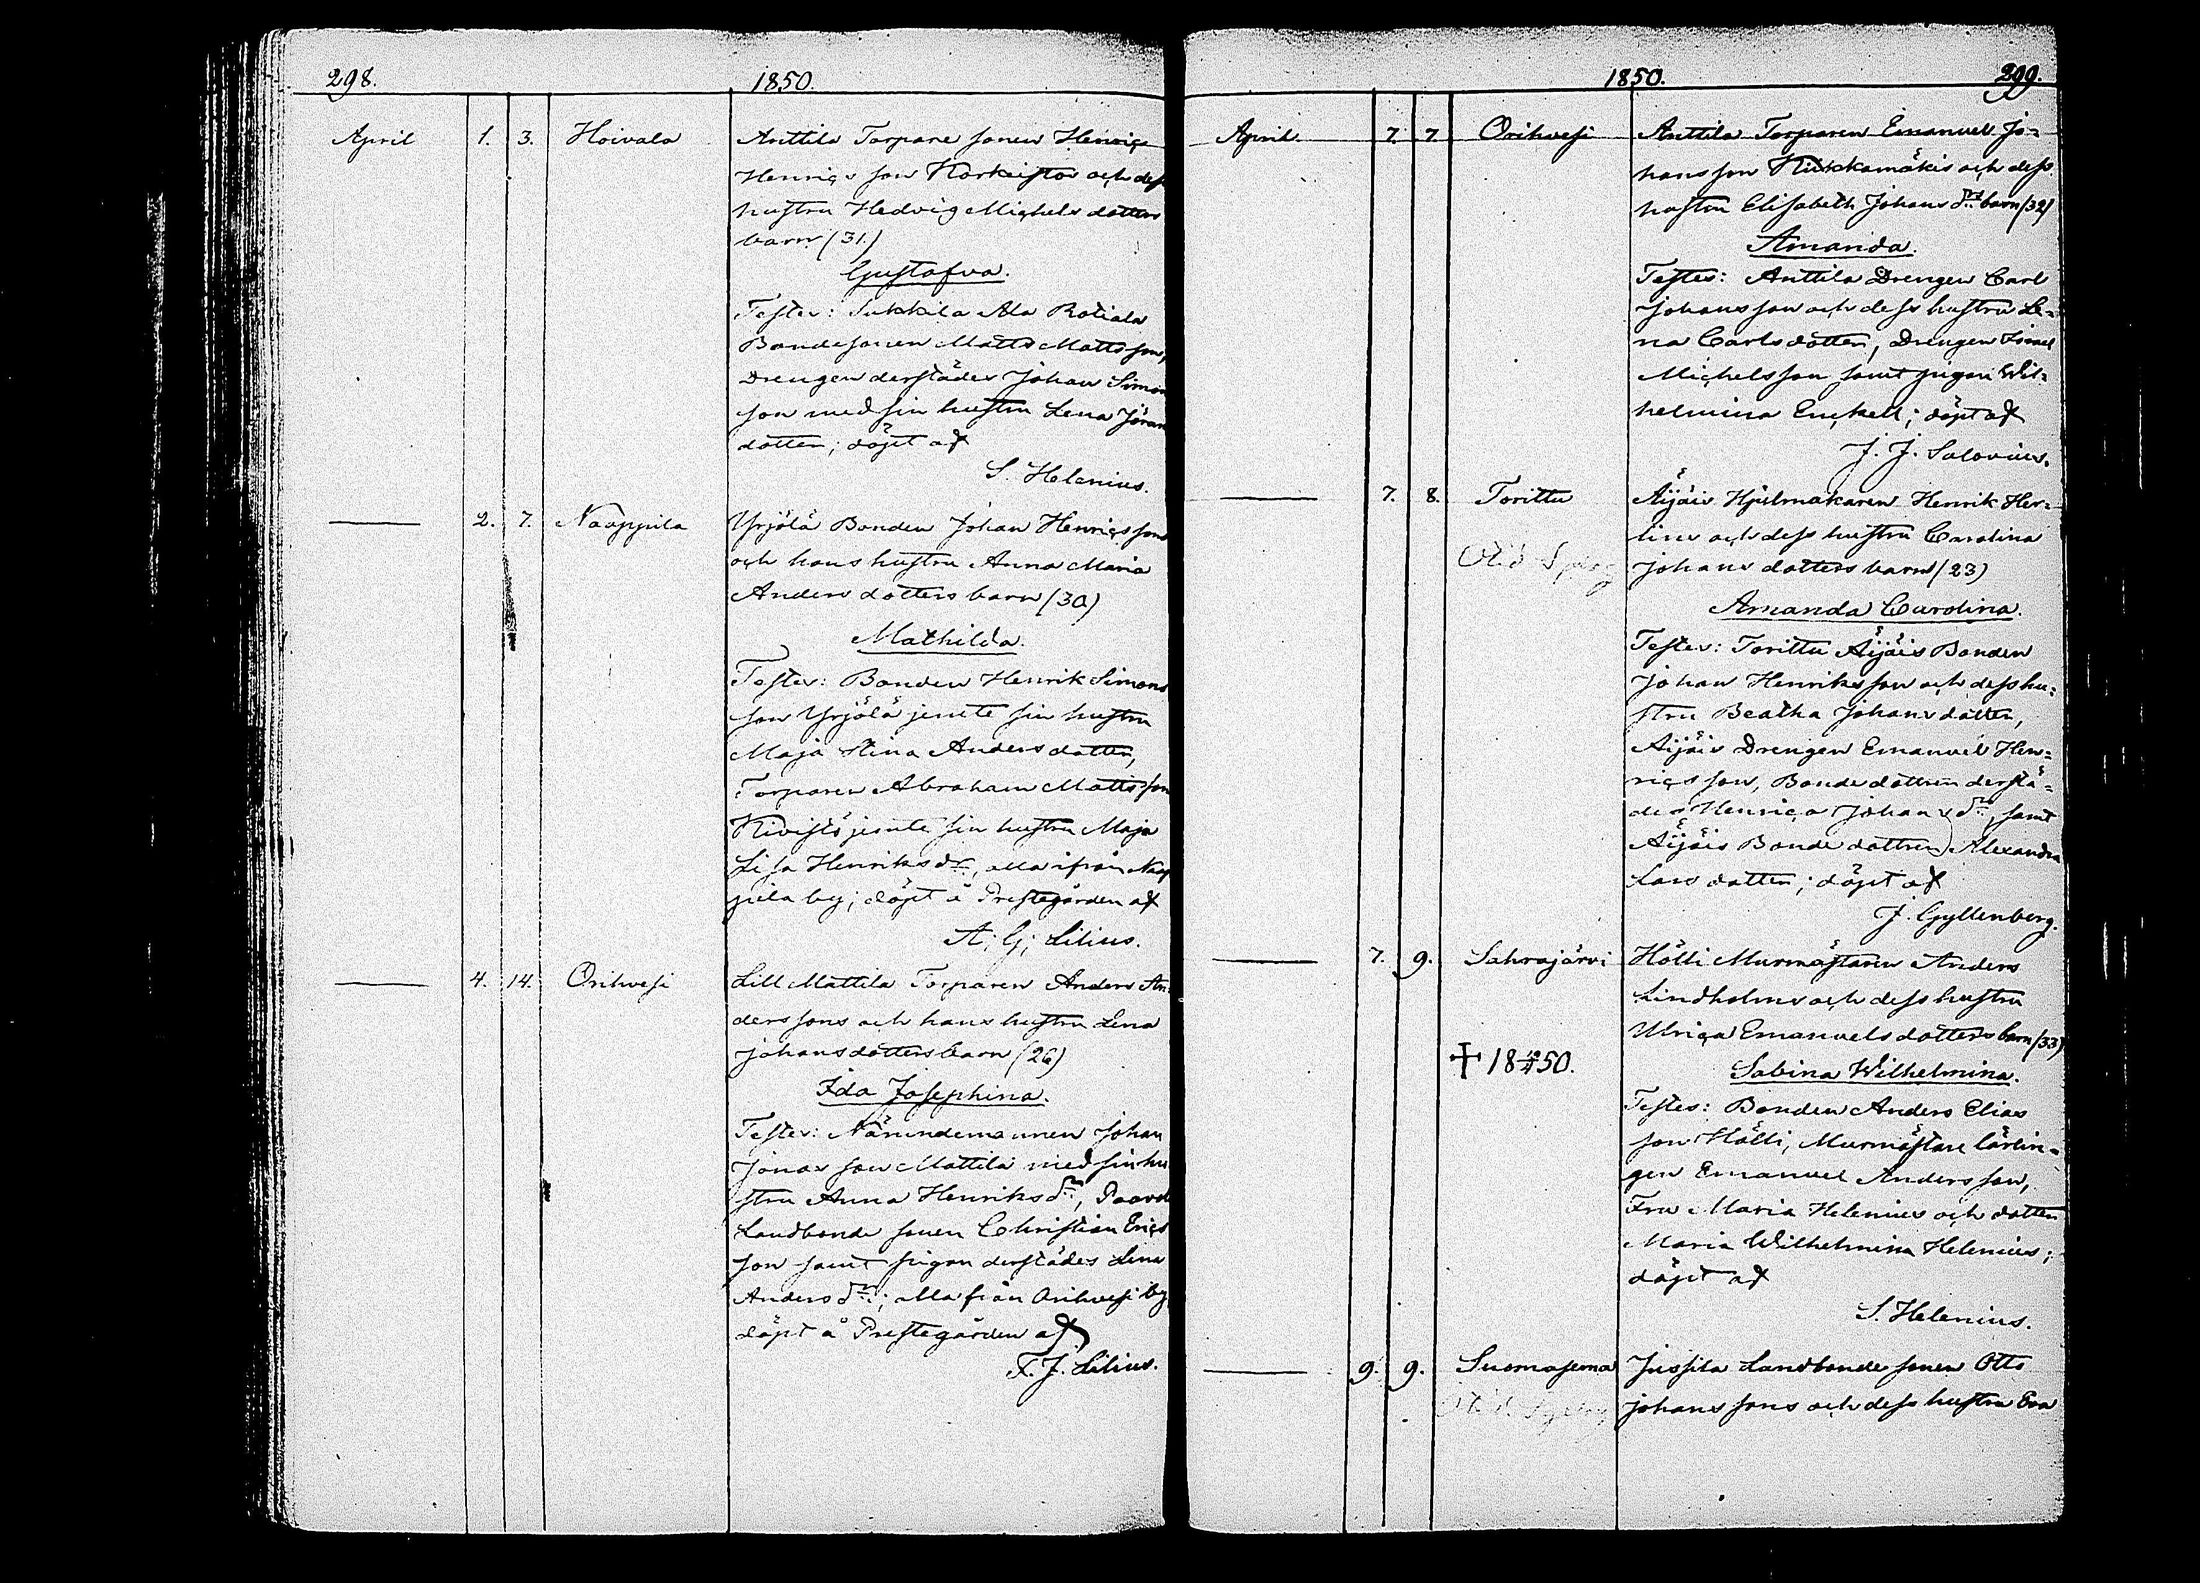 298. 1850.
April 1. 3. Hoivala Anttila Torpare sonen Henric
Henrics son Korkeistos och dess
hustru Hedvig Michels dotters
barn (31.)
Gustafva.
Testes: Sukkila Ala Rotiala
Bondesonen Matts Matts son,
Drengen derstädes Johan Simon
son med sin hustru Lena Jöran
dotter; döpt af
S. Helenius.
2. 7. Naappila Yrjölä Bonden Johan Henrics sons
och hans hustru Anna Maria
Anders dotters barn (30)
Mathilda.
Testes: Bonden Henrik Simons
son Yrjölä jemte sin hustru
Maja Stina Anders dotter,
Torparen Abraham Matts son
Kivistö jemte sin hustru Maja
Lisa Henriks dr, alla ifrån Naap
pila by; döpt å Prestegården af
A; G; Lilius.
4. 14. Orihvesi Lill Mattila Torparen Anders An-
ders sons och hans hustru Lena
Johansdotters barn (26)
Ida Josephina.
Testes: Nämndemannen Johan
Jonas son Mattila med sin hu
stru Anna Henriks dr, Paavol
Landbonde sonen Christian Erics
son samt pigan derstädes Lina
Anders dr; alla från Orihvesi by
döpt å Prestegården af
F. J. Lilius.
1850. 299.
April. 7. 7. Orihvesi Anttila Torparen Emanuel Jo=
hans son Kiukkamäkis och dess
hustru Elisabeth Johans drs barn (32)
Amanda.
Testes: Anttila Drengen Carl
Johans son och dess hustru Le=
na Carls dotter, Drengen Israel
Michels son samt pigan Wil=
helmina Enckell; döpt af
J. J. Salovius.
7. 8. Torittu Äijäis Hjulmakaren Henrik Her=
lins och dess hustru Carolina
Johans dotters barn (23)
Amanda Carolina.
Testes: Torittu Äijäis Bonden
Johan Henriks son och dess hu=
stru Beatha Johans dotter,
Äijäis Drengen Emanuel Hen=
rics son, Bonde dottren derstä=
des Henrica Johans dr, samt
Äijäis Bonde dottren Alexandra
Lars dotter; döpt af
J. Gyllenberg.
7. 9. Sahrajärvi Hölli Murmästaren Anders
Lindholms och dess hustru
Ulrica Emanuels dotters barn (33)
✝ 18 50. Sabina Wilhelmina.
Testes: Bonden Anders Elias
son Hölli, Murmästare lärlin=
gen Emanuel Anders son,
Fru Maria Helenius och dotter
Maria Wilhelmina Helenius;
döpt af
S. Helenius.
9. 9. Suomasema Jussila Landbonde sonen Otto
Johans sons och dess hustru Eva